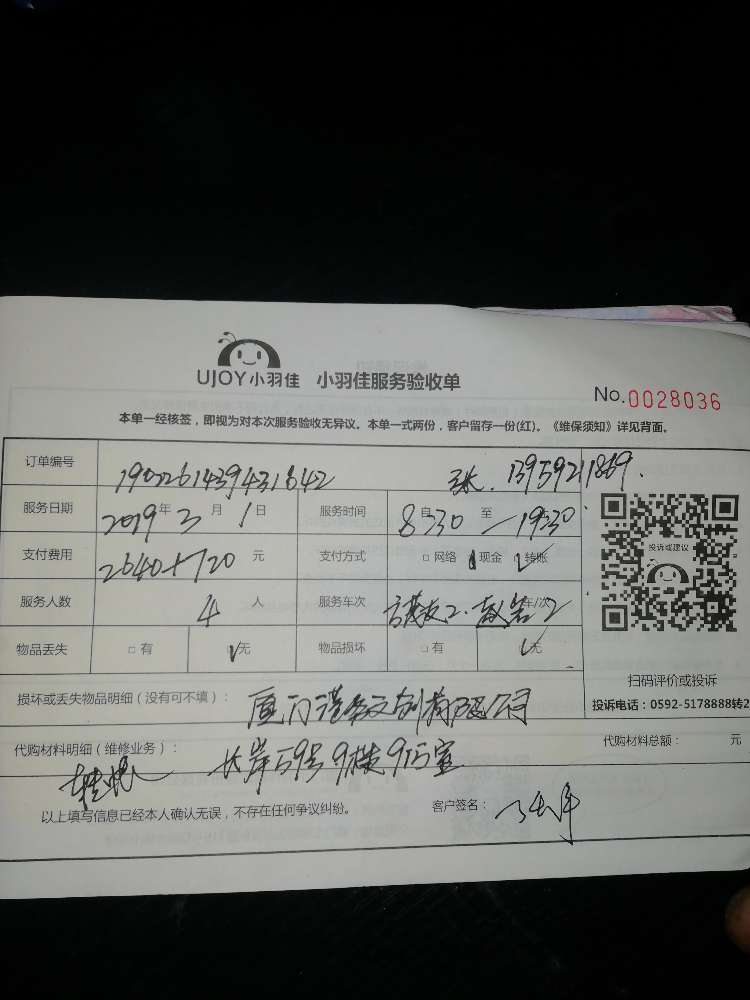 UJOY小羽佳 小羽佳服务验收单
No.0028036
本单一经核签，即视为对本次服务验收无异议。本单一式两份，客户留存一份(红)。《维保须知》详见背面。
订单编号 1902261439431642 张. 13959211869.
服务日期 2019年3月1日 服务时间 8:30至19:30
支付费用 2640+720元 支付方式 □网络 现金 √转账
投诉或建议
服务人数 4人 服务车次 车/次
物品丢失 □有 √无 物品损坏 □有 √无
扫码评价或投诉
损坏或丢失物品明细（没有可不填）： 厦门 文创有限公司
投诉电话：0592-5178888转2
代购材料明细（维修业务）： 长岸 59号9楼 室
代购材料总额： 元
以上填写信息已经本人确认无误，不存在任何争议纠纷。 客户签名：